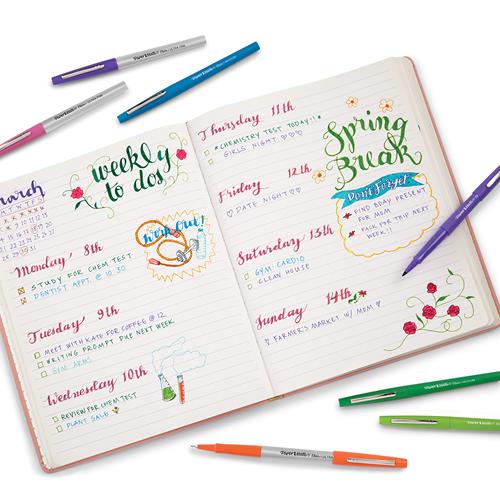 Paper Mate
Flair
march
weekly
to dos
Monday 8th
STUDY FOR CHEM TEST
DENTIST APPT. @ 10:30
work out!
Tuesday 9th
MEET WITH KATE FOR COFFEE @ 12
WRITING PROMPT DUE NEXT WEEK
GYM: ARMS
Wednesday 10th
REVIEW FOR CHEM TEST
PLANT SALE
Thursday 11th
*CHEMISTRY TEST TODAY!!*
GIRLS NIGHT ♡♡♡
Friday 12th
♡ DATE NIGHT ♡
Saturday 13th
GYM: CARDIO
CLEAN HOUSE
Sunday 14th
♡ FARMER'S MARKET W/ MOM ♡
Spring
Break
Don't Forget:
FIND BDAY PRESENT
FOR MOM
PACK FOR TRIP NEXT
WEEK!!
Paper Mate
Paper Mate Flair